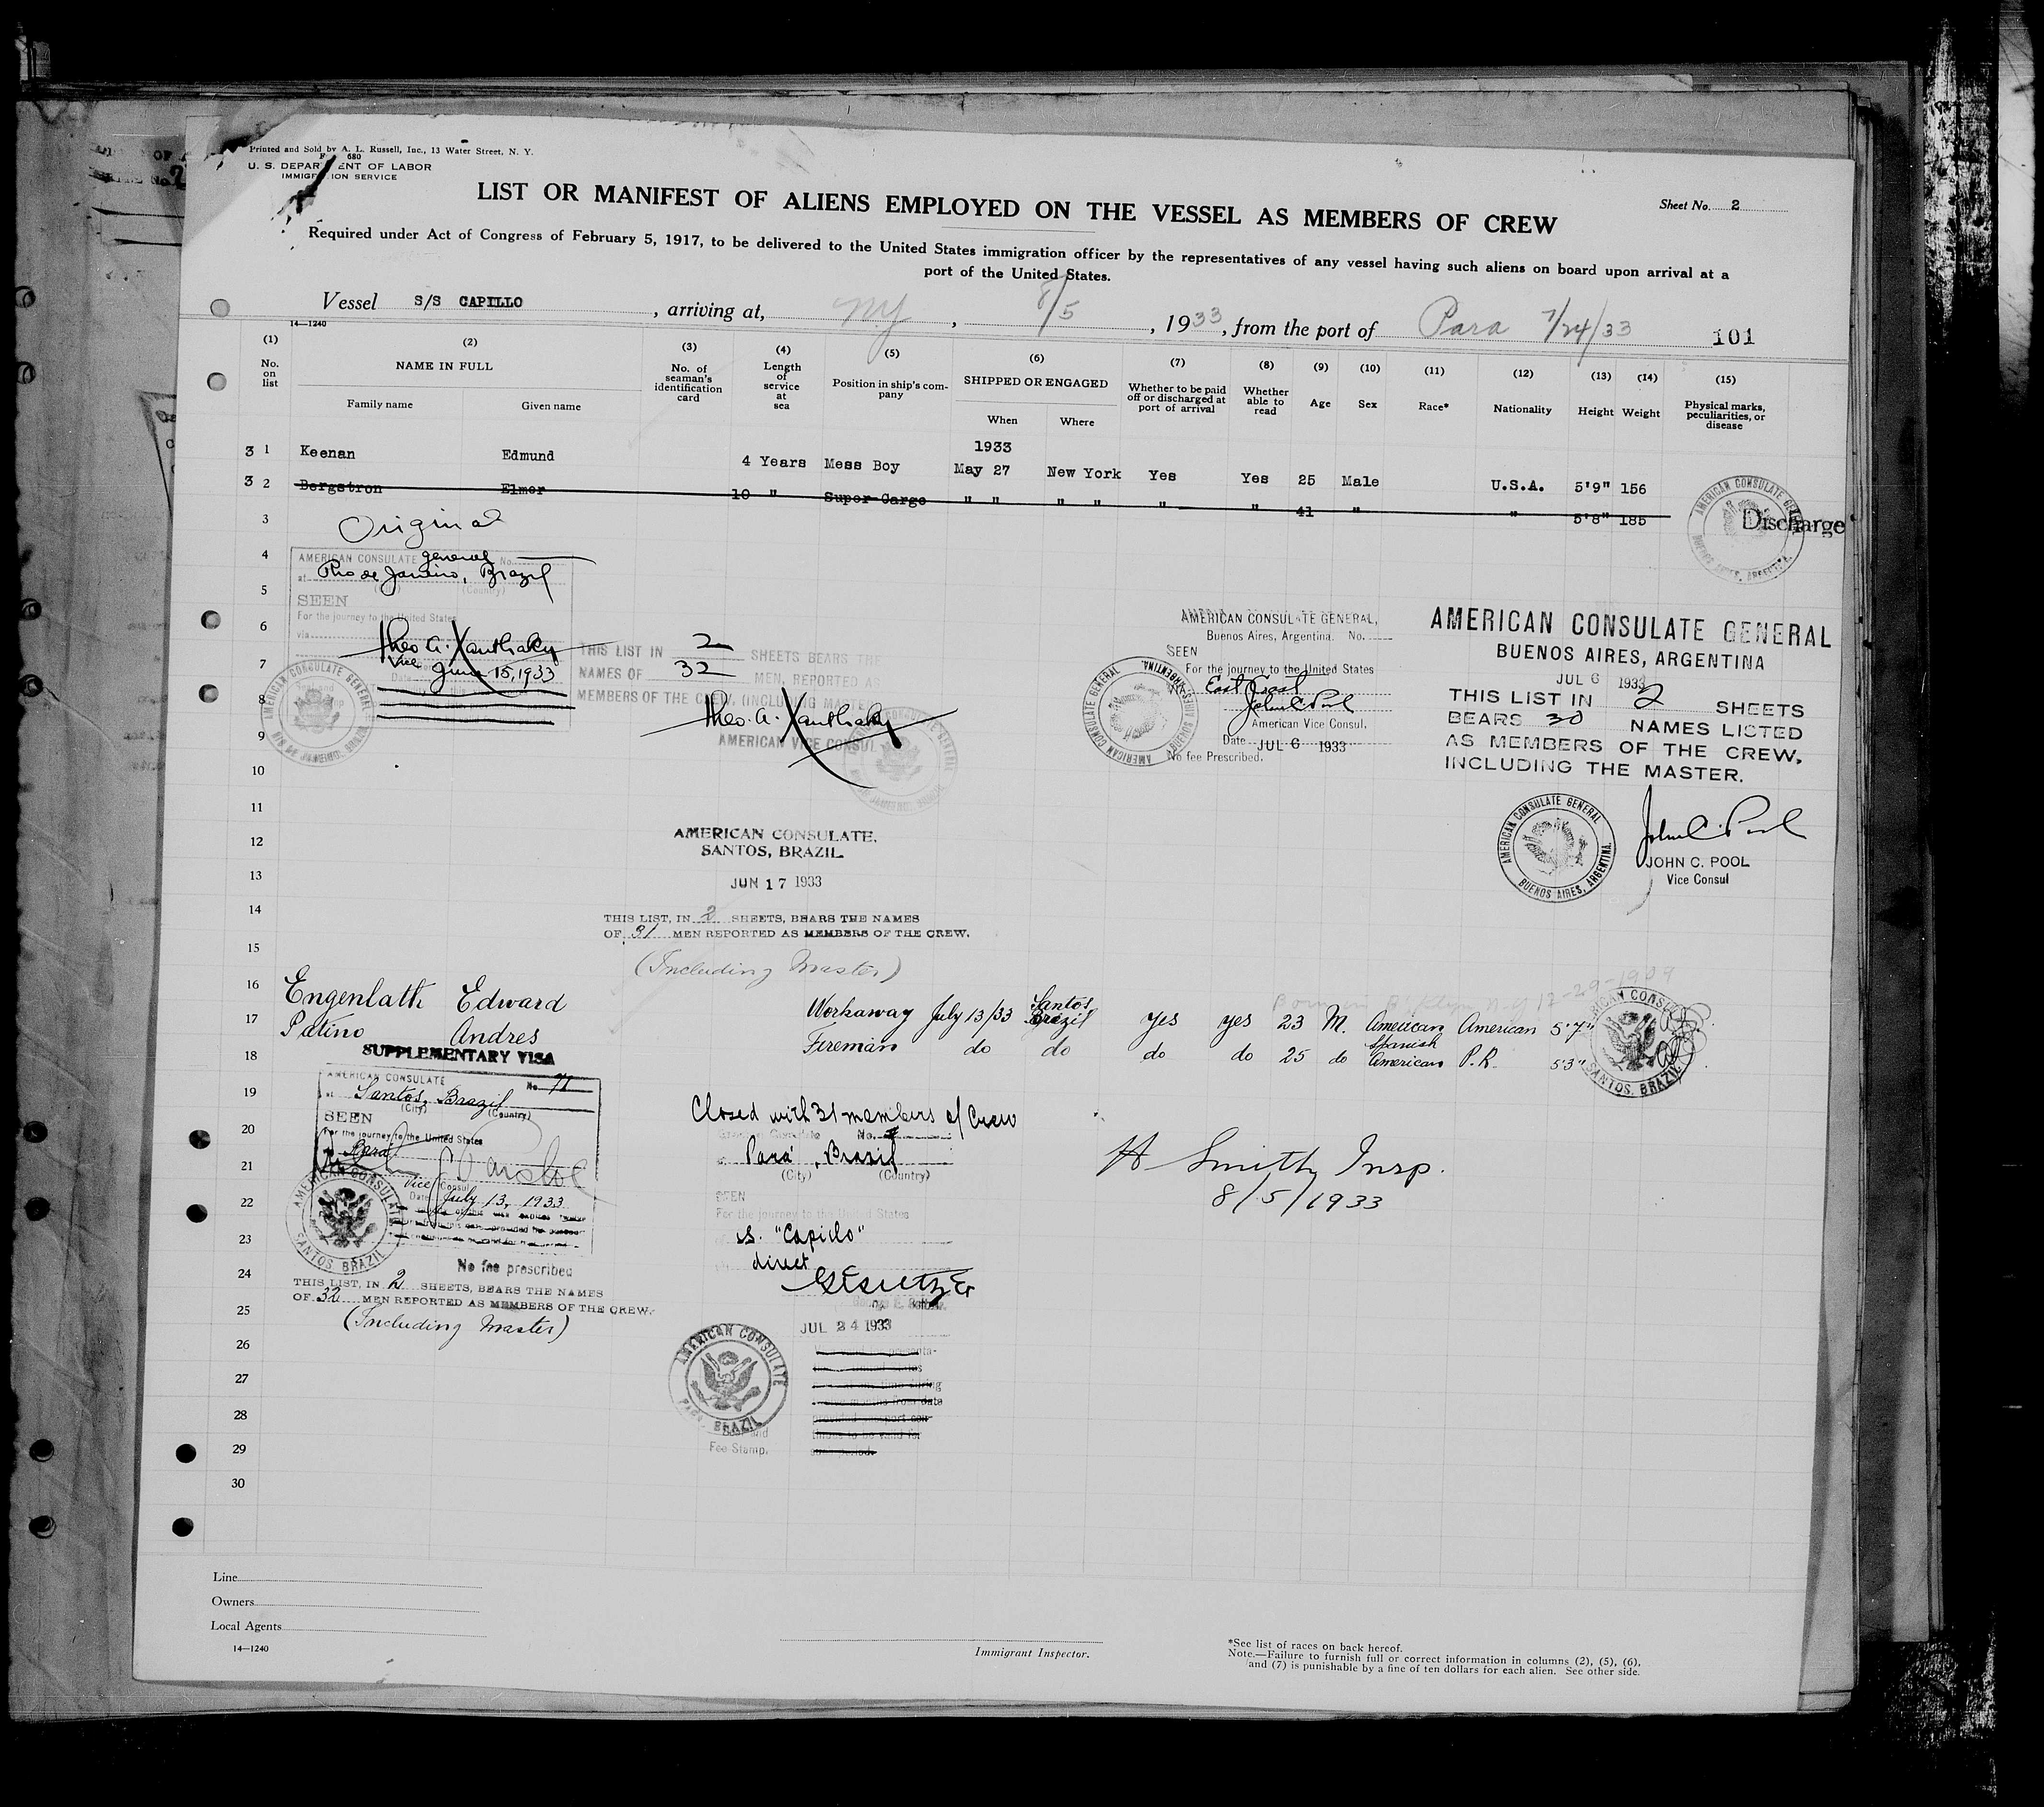 Printed and Sold by A. L. Russell, Inc., 13 Water Street, N. Y.
680
U. S. DEPARTMENT OF LABOR
IMMIGRATION SERVICE
LIST OR MANIFEST OF ALIENS EMPLOYED ON THE VESSEL AS MEMBERS OF CREW
Sheet No. 2
Required under Act of Congress of February 5, 1917, to be delivered to the United States immigration officer by the representatives of any vessel having such aliens on board upon arrival at a
port of the United States.
Vessel S/S CAPILLO, arriving at, NY, 8/5, 1933, from the port of Para 7/24/33
101
14—1240
(1) (2) (3) (4) (5) (6) (7) (8) (9) (10) (11) (12) (13) (14) (15)
No. on list
NAME IN FULL
Family name Given name
No. of seaman's identification card
Length of service at sea
Position in ship's company
SHIPPED OR ENGAGED
When Where
Whether to be paid off or discharged at port of arrival
Whether able to read
Age
Sex
Race*
Nationality
Height
Weight
Physical marks, peculiarities, or disease
1933
3 1 Keenan Edmund 4 Years Mess Boy May 27 New York Yes Yes 25 Male U.S.A. 5'9" 156
3 2 Bergstron Elmer 10 " Super Cargo " " " " " " 41 " " 5'8" 185 Discharge
AMERICAN CONSULATE GENERAL
BUENOS AIRES, ARGENTINA
3
Original
4
AMERICAN CONSULATE general No.
at Rio de Janeiro, Brazil
(Country)
5
SEEN
For the journey to the United States
via
6
Theo. A. Xanthaky
Vice
7
Date June 15, 1933
AMERICAN CONSULATE GENERAL
RIO DE JANEIRO, BRAZIL
THIS LIST IN 2 SHEETS BEARS THE
NAMES OF 32 MEN, REPORTED AS
MEMBERS OF THE CREW, (INCLUDING MASTER
Theo. A. Xanthaky
AMERICAN VICE CONSUL
AMERICAN CONSULATE GENERAL,
Buenos Aires, Argentina. No.
SEEN
For the journey to the United States
East Coast
John C. Pool
American Vice Consul.
Date JUL 6 1933
No fee Prescribed.
AMERICAN CONSULATE GENERAL
BUENOS AIRES, ARGENTINA
AMERICAN CONSULATE GENERAL
BUENOS AIRES, ARGENTINA
JUL 6 1933
THIS LIST IN 2 SHEETS
BEARS 30 NAMES LISTED
AS MEMBERS OF THE CREW,
INCLUDING THE MASTER.
AMERICAN CONSULATE GENERAL
BUENOS AIRES, ARGENTINA
John C. Pool
JOHN C. POOL
Vice Consul
8
9
10
11
12
AMERICAN CONSULATE.
SANTOS, BRAZIL
13
JUN 17 1933
14
THIS LIST, IN 2 SHEETS, BEARS THE NAMES
OF 31 MEN REPORTED AS MEMBERS OF THE CREW.
15
(Including Master)
16
Born in B'klyn N.Y 12-29-1909
Engenlath Edward Workaway July 13/33 Santos Brazil yes yes 23 M. American American 5'7"
17
Patino Andres Fireman do do do do 25 do Spanish American P.R. 5'3"
AMERICAN CONSULATE
SANTOS, BRAZIL
18
SUPPLEMENTARY VISA
AMERICAN CONSULATE No. 71
19
at Santos, Brazil
(City) (Country)
20
SEEN
For the journey to the United States
21
Para
Vice Consul
22
Date July 13, 1933
AMERICAN CONSULATE
SANTOS, BRAZIL
23
No fee prescribed
24
THIS LIST, IN 2 SHEETS, BEARS THE NAMES
OF 32 MEN REPORTED AS MEMBERS OF THE CREW.
25
(Including Master)
Closed with 31 members of Crew
No.
Pará, Brazil
(City) (Country)
SEEN
For the journey to the United States
s. "Capillo"
direct
JUL 24 1933
AMERICAN CONSULATE
PARA, BRAZIL
Fee Stamp.
H Smith Insp.
8/5/1933
26
27
28
29
30
Line
Owners
Local Agents
14—1240
Immigrant Inspector.
*See list of races on back hereof.
Note.—Failure to furnish full or correct information in columns (2), (5), (6),
and (7) is punishable by a fine of ten dollars for each alien. See other side.